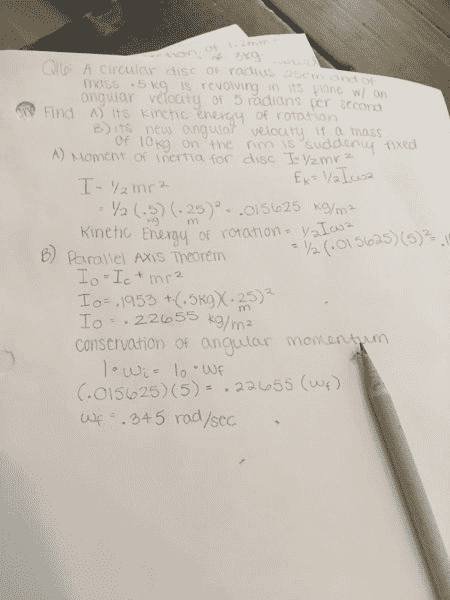 of 1.2mm
3kg.
Q16: A circular disc of radius 25cm and of
mass .5 kg is revolving in its plane w/ an
angular velocity of 5 radians per second
Find A) its kinetic energy of rotation
B) its new angular velocity if a mass
of 10kg on the rim is suddenly fixed
A) Moment of inertia for disc I = 1/2mr²
I = 1/2mr² Ek = 1/2Iω2
= 1/2 (.5) (.25)² = .015625 kg/m²
kg m
Kinetic Energy of rotation = 1/2Iω2
= 1/2 (.015625)(5)² = .1
B) Parallel AXIS Theorem
Io = Ic + mr²
Io = .1953 + (.5kg)(.25)²
m
Io = .22655 kg/m²
conservation of angular momentum
I•ωi = Io•ωf
(.015625)(5) = .22655 (ωf)
ωf = .345 rad/sec